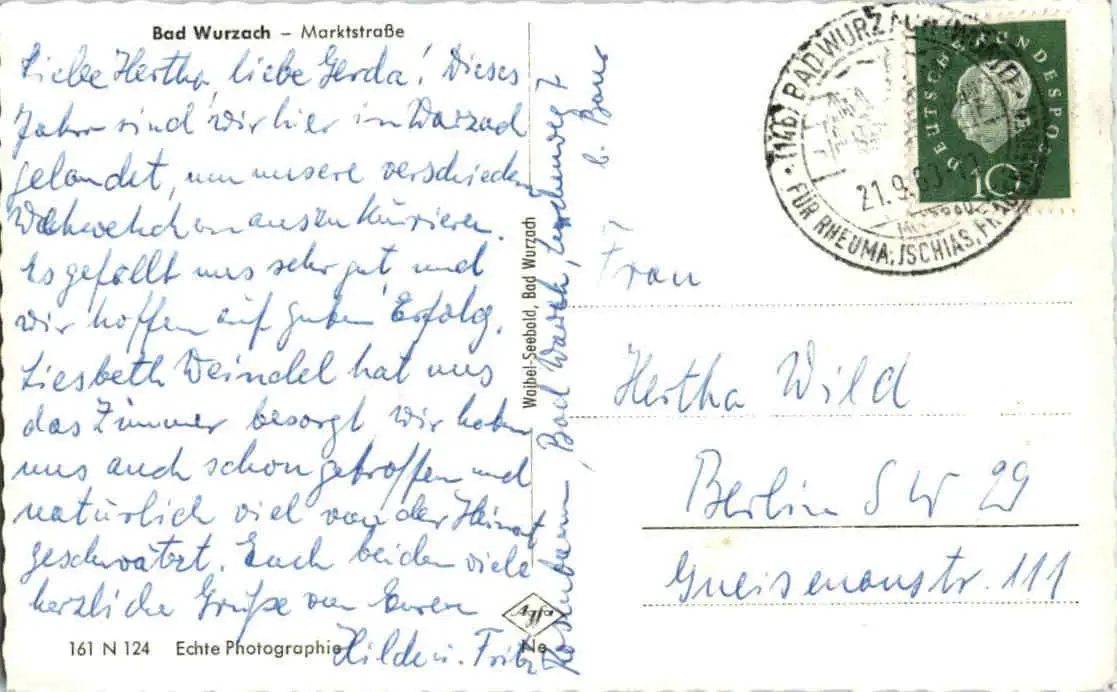 Bad Wurzach – Marktstraße
Liebe Hertha, liebe Gerda! Dieses
Jahr sind wir hier in Wurzach
gelandet, um unsere verschieden
Wehwehchen auszukurieren.
Es gefällt uns sehr gut, und
wir hoffen auf guten Erfolg.
Liesbeth Weindel hat uns
das Zimmer besorgt, wir haben
uns auch schon getroffen und
natürlich viel von der Heimat
geschwätzt. Euch beiden viele
herzliche Grüße von Euren
Hilde u. Fritz
161 N 124 Echte Photographie
Waibel-Seebold, Bad Wurzach
Bad
b.
BAD WURZACH
21.9.60
FÜR RHEUMA, ISCHIAS,
DEUTSCHE BUNDESPOST
10
Frau
Hertha Wild
Berlin SW 29
Gneisenaustr. 111